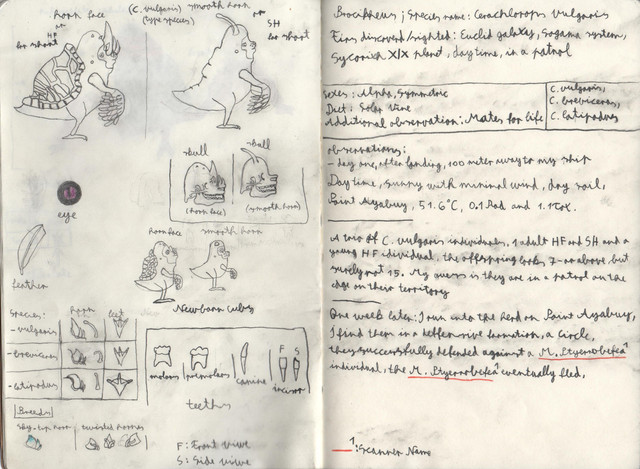 horn face
or HF
for short
(C. vulgaris)
(type species)
smooth horn
or SH
for short
skull
skull
(horn face)
(smooth horn)
eye
feather
horn face
smooth horn
Newborn cubs
Species:
horn
feet
-vulgaris
-breviceras
-latipodus
Breeds
molars
premolars
canine
F
S
incisor
teeths
F: Front view
S: Side view
; Species name: Cerachlorops vulgaris
Firs discovered/sighted: Euclid galaxy, Sogama system,
Sycorich XIX planet, daytime, in a patrol
Sexes: Alpha, Symmetric
Diet: Solar Vine
Additional observation: Mates for life
C. vulgaris,
C. breviceras,
C. latipodus
observations:
- day one, after landing, 100 meter away to my ship
Daytime, sunny with minimal wind, dry soil,
Point Ayabury, 51.6°C, 0.1 Rad and 1.1 tox.
A trio of C. vulgaris individuals, 1 adult HF and SH and a
young HF idividual, the offspring looks 7 or above, but
surely not 15. My guess is they are in a patrol on the
edge on their territory
One week later: I run into the herd on Point Ayabury,
I find them in a deffensive formation, a Circle,
they successfully defended against a M.
individual, the M. eventually fled.
1: Scanner Name